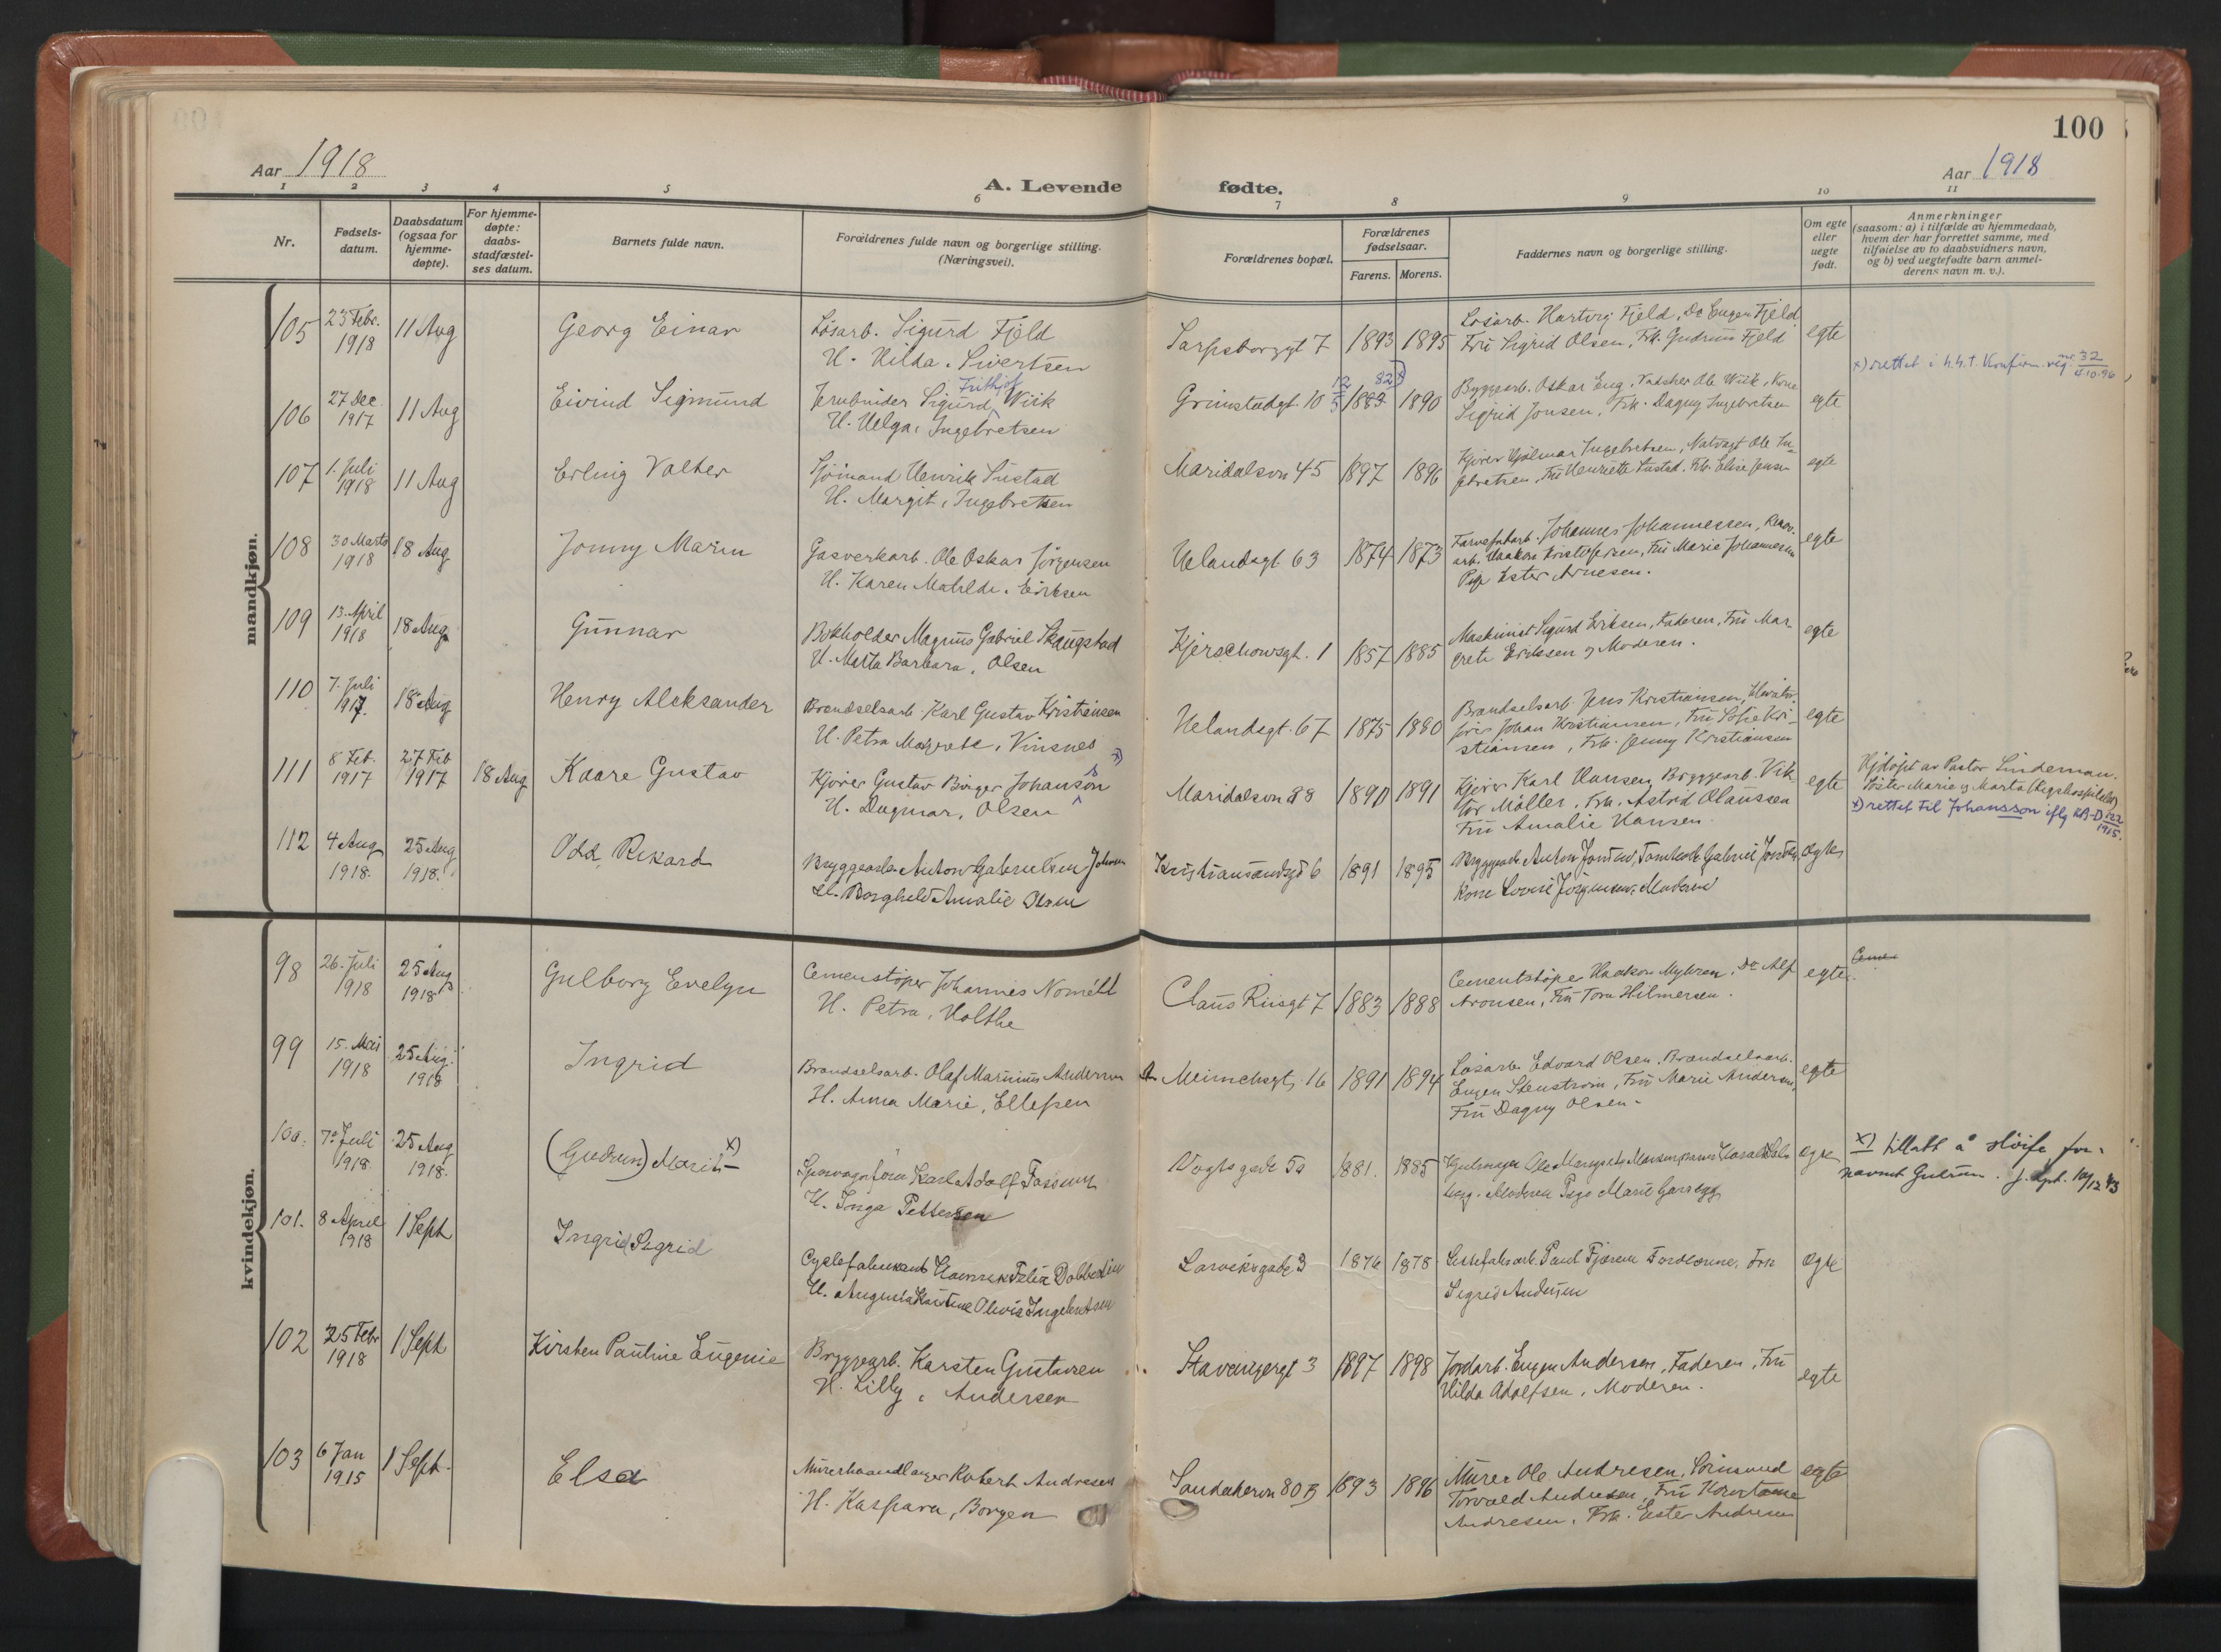 100
Aar 1918
A. Levende fødte.
Aar 1918
1 2 3 4 5 6 7 8 9 10 11
Nr.
Fødsels-
datum.
Daabsdatum
(ogsaa for
hjemme-
døpte).
For hjemme-
døpte:
daabs-
stadfæstel-
ses datum.
Barnets fulde navn.
Forældrenes fulde navn og borgerlige stilling.
(Næringsvei).
Forældrenes bopæl.
Forældrenes
fødselsaar.
Farens. Morens.
Faddernes navn og borgerlige stilling.
Om egte
eller
uegte
født.
Anmerkninger
(saasom: a) i tilfælde av hjemmedaab,
hvem der har forrettet samme, med
tilføielse av to daabsvidners navn,
og b) ved uegtefødte barn anmel-
derens navn m. v.).
mandkjøn.
105 23 Febr. 1918 11 Aug Georg Einar
Løsarb. Sigurd Fjeld
H. Hilda, Sivertsen
Sarpsborggt 7 1893 1895
Løsarb. Hartvig Fjeld, Do Eugen Fjeld
Fru Sigrid Olsen, Frk. Gudrun Fjeld
egte
106 27 Dec 1917 11 Aug Eivind Sigmund
Jernbinder Sigurd Frithjof Wiik
H. Helga, Ingebretsen
Grimstadgt. 10 12/5 1883 82 x) 1890
Byggearb. Oskar Eng, Vadsker Ole Wiik, Kone
Sigrid Jonsen, Frk. Dagny Ingebretsen
egte
x) rettet i h.h.t. Konfirm. reg. nr. 32
107 1. Juli 1918 11 Aug Erling Valter
Sjømand Henrik Sustad
H. Margit, Ingebretsen
Maridalsvn 45 1897 1896
Kjører Hjalmar Ingebretsen, Natvagt Ole In-
gebretsen, Fru Henriette Sustad, Frk. Elise Jensen
egte
108 30 Marts 1918 18 Aug Jonny Marin
Gasverkarb. Ole Oskar Jörgensen
H. Karen Matilde, Eriksen
Uelandsgt 63 1874 1873
Farvefabarb. Johannes Johannessen, Renov.
arb. Haakon Kristofersen, Fru Marie Johannessen
Pige Ester Arnesen.
egte
109 13 April 1918 18 Aug Gunnar
Bokholder Magnus Gabriel Skaugstad
H. Marta Barbara, Olsen
Kjerschowsgt. 1 1857 1885
Maskinist Sigurd Eriksen, Faderen, Fru Mar-
grete Eriksen og Moderen.
egte
110 7. Juli 1917. 18 Aug Henry Aleksander
Brændselsarb. Karl Gustav Kristiansen
H. Petra Margrete, Vinsnes
Uelandsgt. 67 1875 1880
Brændselsarb. Jens Kristiansen, Elevator
fører Johan Kristiansen, Fru Sofie Kri-
stiansen, Frk. Jenny Kristiansen
egte
111 8 Feb. 1917 27 Feb 1917 18 Aug Kaare Gustav
Kjører Gustav Birger Johanson s x)
H. Dagmar, Olsen
Maridalsvn 88 1890 1891
Kjører Karl Hansen, Bryggearb. Vik-
tor Møller, Frk. Astrid Olaussen
Fru Amalie Hansen.
egte
Hjdøpt av Pastor Lindeman.
Søster Marie og Marta (Rigshospitalet)
x) rettet til Johansson iflg RB-D 122/1915.
112 4 Aug 1918. 25 Aug 1918. Odd Rikard
Bryggearb. Anton Gabrielsen Johnsen
H. Borghild Amalie Olsen
Kristiansandsgt 6 1891 1895
Kone Lovise Jørgensen, Moderen
egte
kvindekjøn.
98 26. Juli 1918 25 Aug 1918 Gulborg Evelyn
Cementstøper Johannes Nomell
H. Petra, Holthe
Claus Riisgt 7 1883 1888
Cementstøpe Haakon Myhren, Do Alf
Aronsen, Fru Tora Hilmersen.
egte.
99 15. Mai 1918 25 Aug. 1918 Ingrid
Brændselsarb. Olaf Marinius Andersen
H. Anna Marie, Ellefsen
Meinichsgt. 16 1891 1894
Løsarb. Edvard Olsen, Brændselsarb.
Eugen Stenstrøm, Fru Marie Andersen,
Fru Dagny Olsen.
egte
100. 7 Juli 1918. 25 Aug 1918. (Gudrun) Marit x)
Sporvognfører Karl Adolf Fossum
H. Inga Pettersen
Vogtsgade 50 1881. 1885
egte
x) tillatt å sløife for-
navnet Gudrun. J. dpt. 10/12 43
101. 8 April 1918 1 Sept Ingrid Sigrid
H. Augusta Kristine Olivia Ingebretsen
Larviksgade 3 1876 1878
Sigrid Andersen
egte
102 25 Febr 1918 1 Sept Kirsten Pauline Eugenie
Bryggearb. Karsten Gustavsen
H. Lilly, Andersen
Stavangergt 3 1897 1898
Jordarb. Eugen Andersen, Faderen, Fru
Hilda Adolfsen, Moderen.
egte
103 6 Jan 1915 1 Sept. Elsa
Murerhaandlanger Robert Andresen
H. Kaspara, Borgen
Sandakervn 80 B 1893 1896
Murer Ole Andresen, Sömand
Torvald Andresen, Fru Konstanse
Andresen, Frk. Ester Andresen
egte